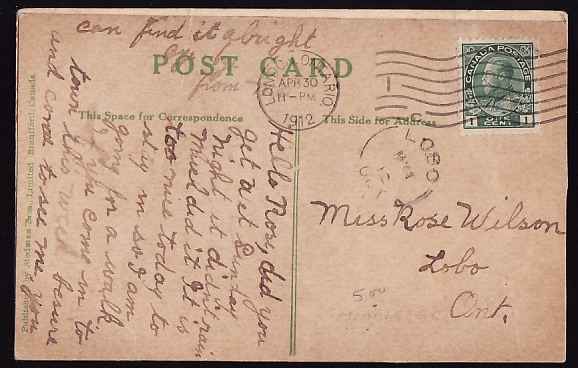 can find it alright
POST CARD
LONDON, ONTARIO
APR 30
11-PM
1912
CANADA POSTAGE
1 ONE CENT 1
This Space for Correspondence
This Side for Address
LOBO
ONT
Hello Rose, did you
get wet Sunday
night it didn't rain
much did it It is
too nice today to
stay in so I am
going for a walk
if you come in to
town this week be sure
and come to see me you
from
Miss Rose Wilson
Lobo
Ont.
5.00
MIDDLESEX
Bros., Limited, Brantford, Canada